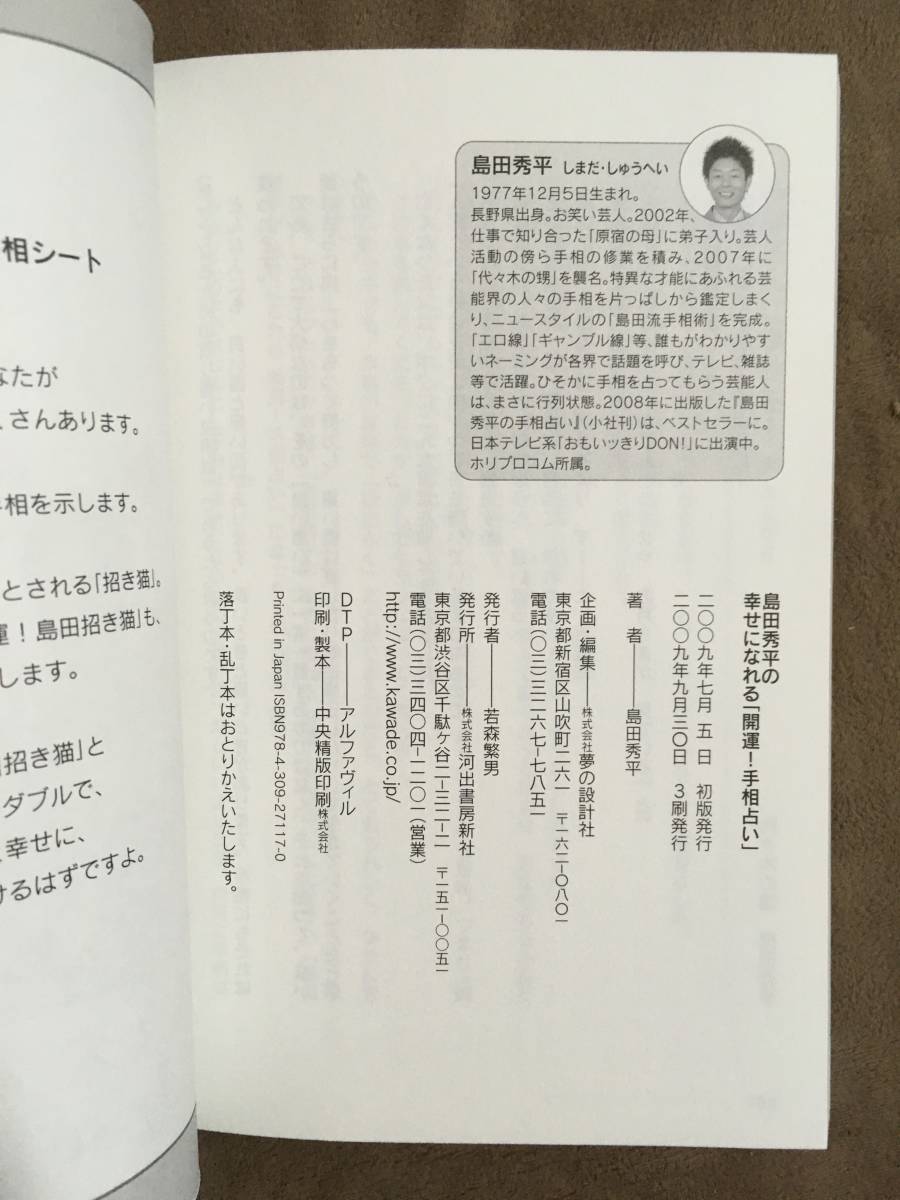 相シート
なたが
さんあります。
相を示します。
とされる「招き猫」。
運！島田招き猫」も、
します。
招き猫」と
ダブルで、
幸せに、
けるはずですよ。
島田秀平 しまだ・しゅうへい
1977年12月5日生まれ。
長野県出身。お笑い芸人。2002年、
仕事で知り合った「原宿の母」に弟子入り。芸人
活動の傍ら手相の修業を積み、2007年に
「代々木の甥」を襲名。特異な才能にあふれる芸
能界の人々の手相を片っぱしから鑑定しまく
り、ニュースタイルの「島田流手相術」を完成。
「エロ線」「ギャンブル線」等、誰もがわかりやす
いネーミングが各界で話題を呼び、テレビ、雑誌
等で活躍。ひそかに手相を占ってもらう芸能人
は、まさに行列状態。2008年に出版した『島田
秀平の手相占い』（小社刊）は、ベストセラーに。
日本テレビ系「おもいッきりDON!」に出演中。
ホリプロコム所属。
島田秀平の
幸せになれる「開運！手相占い」
二〇〇九年七月 五 日 初版発行
二〇〇九年九月三〇日 3刷発行
著 者――島田秀平
企画・編集――株式会社夢の設計社
東京都新宿区山吹町二六一 〒一六二-〇八〇一
電話（〇三）三二六七-七八五一
発行者――若森繁男
発行所――株式会社河出書房新社
東京都渋谷区千駄ヶ谷二-三二-二 〒一五一-〇〇五一
電話（〇三）三四〇四-一二〇一（営業）
http://www.kawade.co.jp/
DTP――アルファヴィル
印刷・製本――中央精版印刷株式会社
Printed in Japan ISBN978-4-309-27117-0
落丁本・乱丁本はおとりかえいたします。